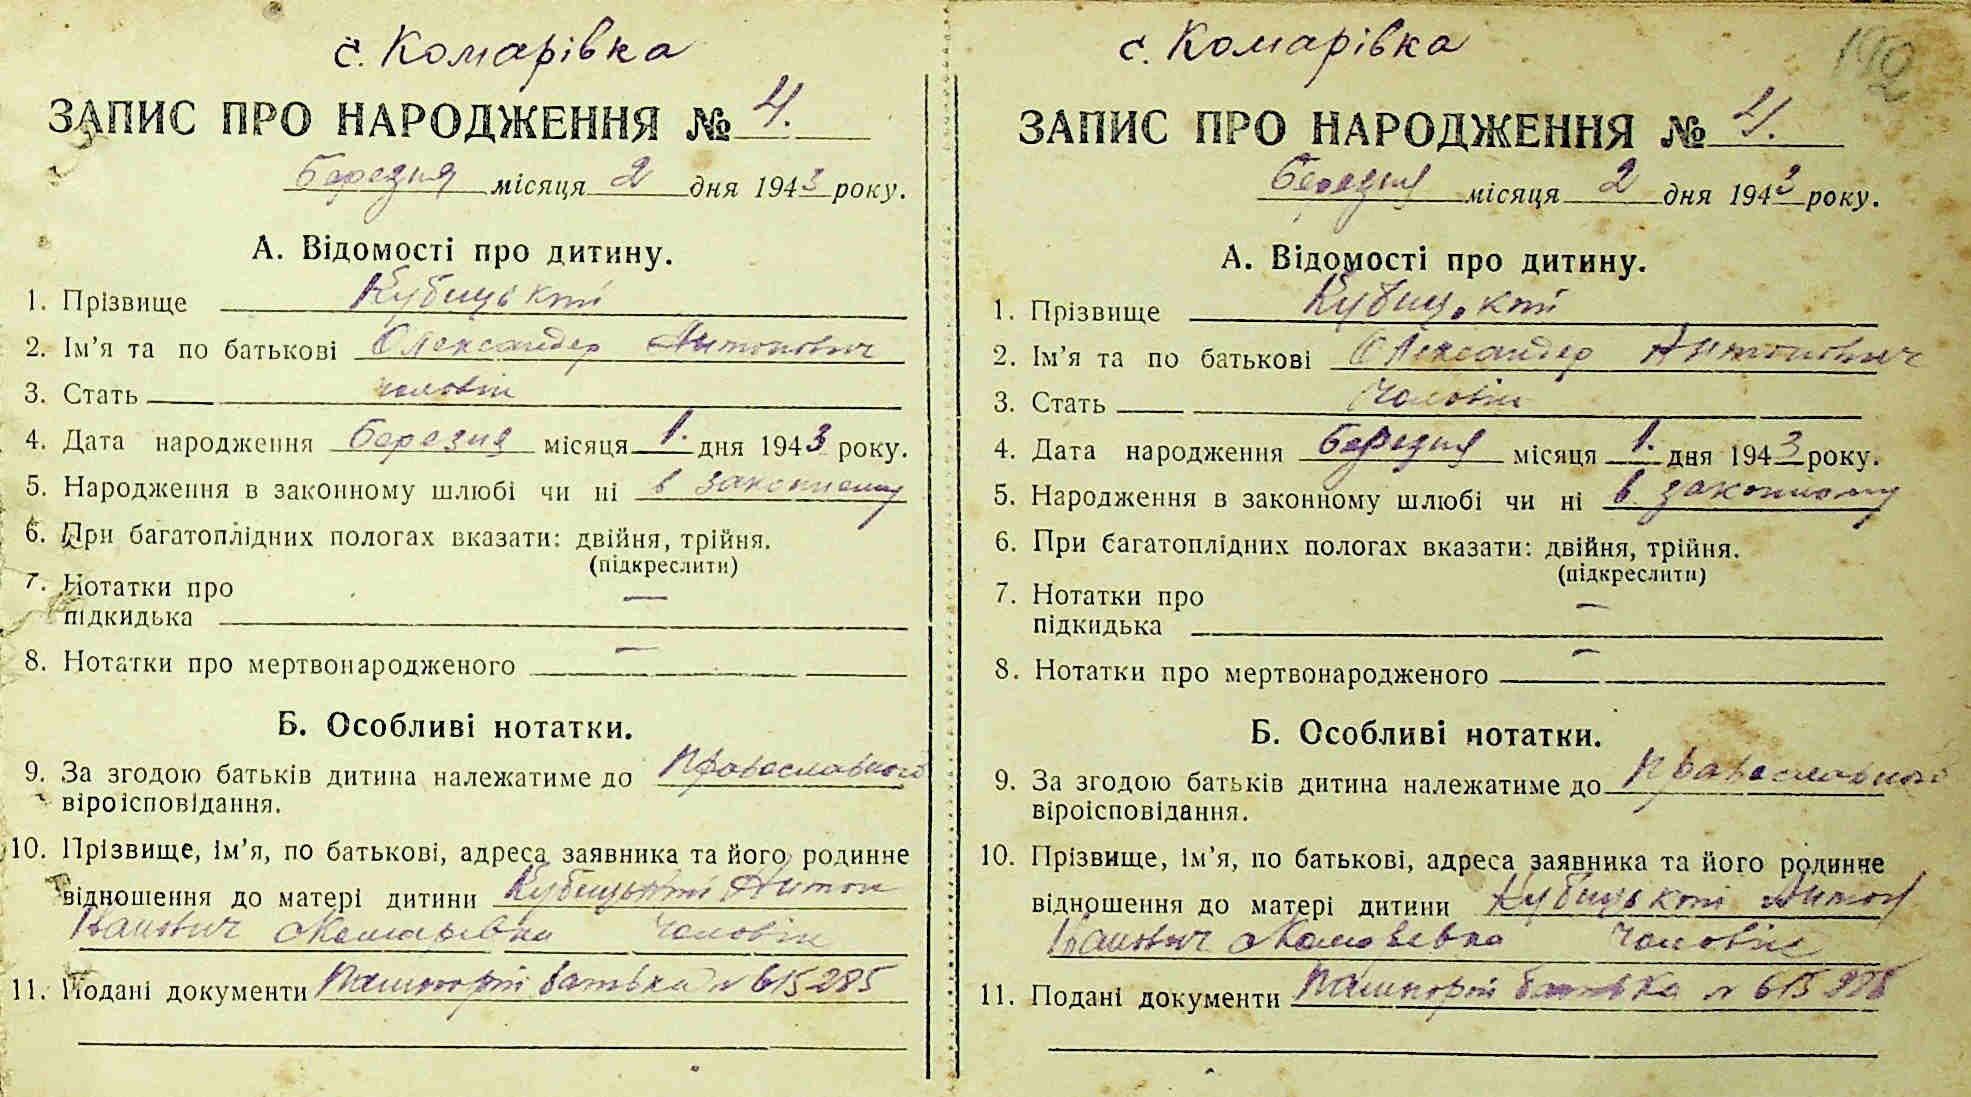 с. Комарівка
ЗАПИС ПРО НАРОДЖЕННЯ № 4.
Березня місяця 2 дня 1943 року.
А. Відомості про дитину.
1. Прізвище Кубицький
2. Ім’я та по батькові Олександер Антонович
3. Стать чоловік
4. Дата народження березня місяця 1. дня 1943 року.
5. Народження в законному шлюбі чи ні в законному
6. При багатоплідних пологах вказати: двійня, трійня.
(підкреслити)
7. Нотатки про
підкидька —
8. Нотатки про мертвонародженого —
Б. Особливі нотатки.
9. За згодою батьків дитина належатиме до православного
віроісповідання.
10. Прізвище, ім’я, по батькові, адреса заявника та його родинне
відношення до матері дитини Кубицький Антон
Іванович Комарівка чоловік
11. Подані документи Пашпорт батька № 615285
с. Комарівка
192
ЗАПИС ПРО НАРОДЖЕННЯ № 4.
Березня місяця 2 дня 1943 року.
А. Відомості про дитину.
1. Прізвище Кубицький
2. Ім’я та по батькові Олександер Антонович
3. Стать чоловік
4. Дата народження березня місяця 1. дня 1943 року.
5. Народження в законному шлюбі чи ні в законному
6. При багатоплідних пологах вказати: двійня, трійня.
(підкреслити)
7. Нотатки про
підкидька —
8. Нотатки про мертвонародженого —
Б. Особливі нотатки.
9. За згодою батьків дитина належатиме до православного
віроісповідання.
10. Прізвище, ім’я, по батькові, адреса заявника та його родинне
відношення до матері дитини Кубицький Антон
Іванович Комарівка чоловік
11. Подані документи Пашпорт батька №